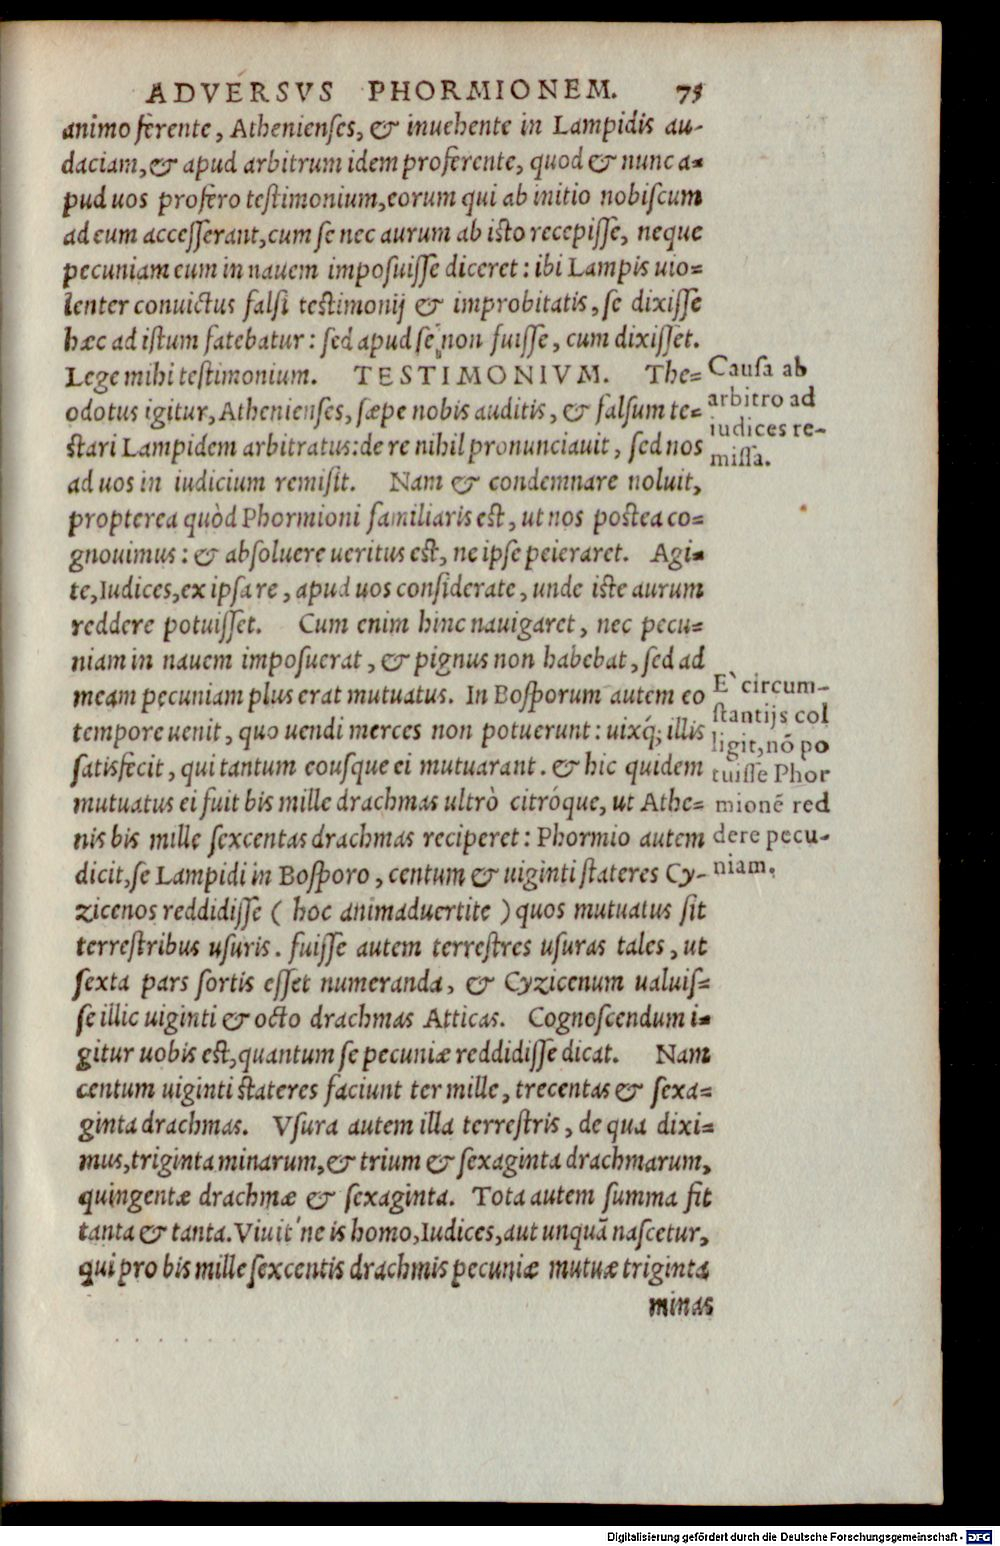 ADVERSVS PHORMIONEM. 75
animo ferente, Athenienses, & inuehente in Lampidis au-
daciam, & apud arbitrum idem proferente, quod & nunc a-
pud uos profero testimonium, eorum qui ab initio nobiscum
ad eum accesserant, cum se nec aurum ab isto recepisse, neque
pecuniam eum in nauem imposuisse diceret: ibi Lampis uio-
lenter conuictus falsi testimonij & improbitatis, se dixisse
hæc ad istum fatebatur: sed apud se non fuisse, cum dixisset.
Lege mihi testimonium. TESTIMONIVM. The-
odotus igitur, Athenienses, sæpe nobis auditis, & falsum te-
stari Lampidem arbitratus: de re nihil pronunciauit, sed nos
ad uos in iudicium remisit. Nam & condemnare noluit,
propterea quòd Phormioni familiaris est, ut nos postea co-
gnouimus: & absoluere ueritus est, ne ipse peieraret. Agi-
te, Iudices, ex ipsa re, apud uos considerate, unde iste aurum
reddere potuisset. Cum enim hinc nauigaret, nec pecu-
niam in nauem imposuerat, & pignus non habebat, sed ad
meam pecuniam plus erat mutuatus. In Bosporum autem eo
tempore uenit, quo uendi merces non potuerunt: uixq́; illis
satisfecit, qui tantum eousque ei mutuarant. & hic quidem
mutuatus ei fuit bis mille drachmas ultrò citróque, ut Athe-
nis bis mille sexcentas drachmas reciperet: Phormio autem
dicit, se Lampidi in Bosporo, centum & uiginti stateres Cy-
zicenos reddidisse ( hoc animaduertite ) quos mutuatus sit
terrestribus usuris. fuisse autem terrestres usuras tales, ut
sexta pars sortis esset numeranda, & Cyzicenum ualuis-
se illic uiginti & octo drachmas Atticas. Cognoscendum i-
gitur uobis est, quantum se pecuniæ reddidisse dicat. Nam
centum uiginti stateres faciunt ter mille, trecentas & sexa-
ginta drachmas. Vsura autem illa terrestris, de qua dixi-
mus, triginta minarum, & trium & sexaginta drachmarum,
quingentæ drachmæ & sexaginta. Tota autem summa fit
tanta & tanta. Viuit'ne is homo, Iudices, aut unquã nascetur,
qui pro bis mille sexcentis drachmis pecuniæ mutuæ triginta
minas
Causa ab
arbitro ad
iudices re-
missa.
E` circum-
stantijs col
ligit, nõ po
tuisse Phor
mionẽ red
dere pecu-
niam.
Digitalisierung gefördert durch die Deutsche Forschungsgemeinschaft - DFG